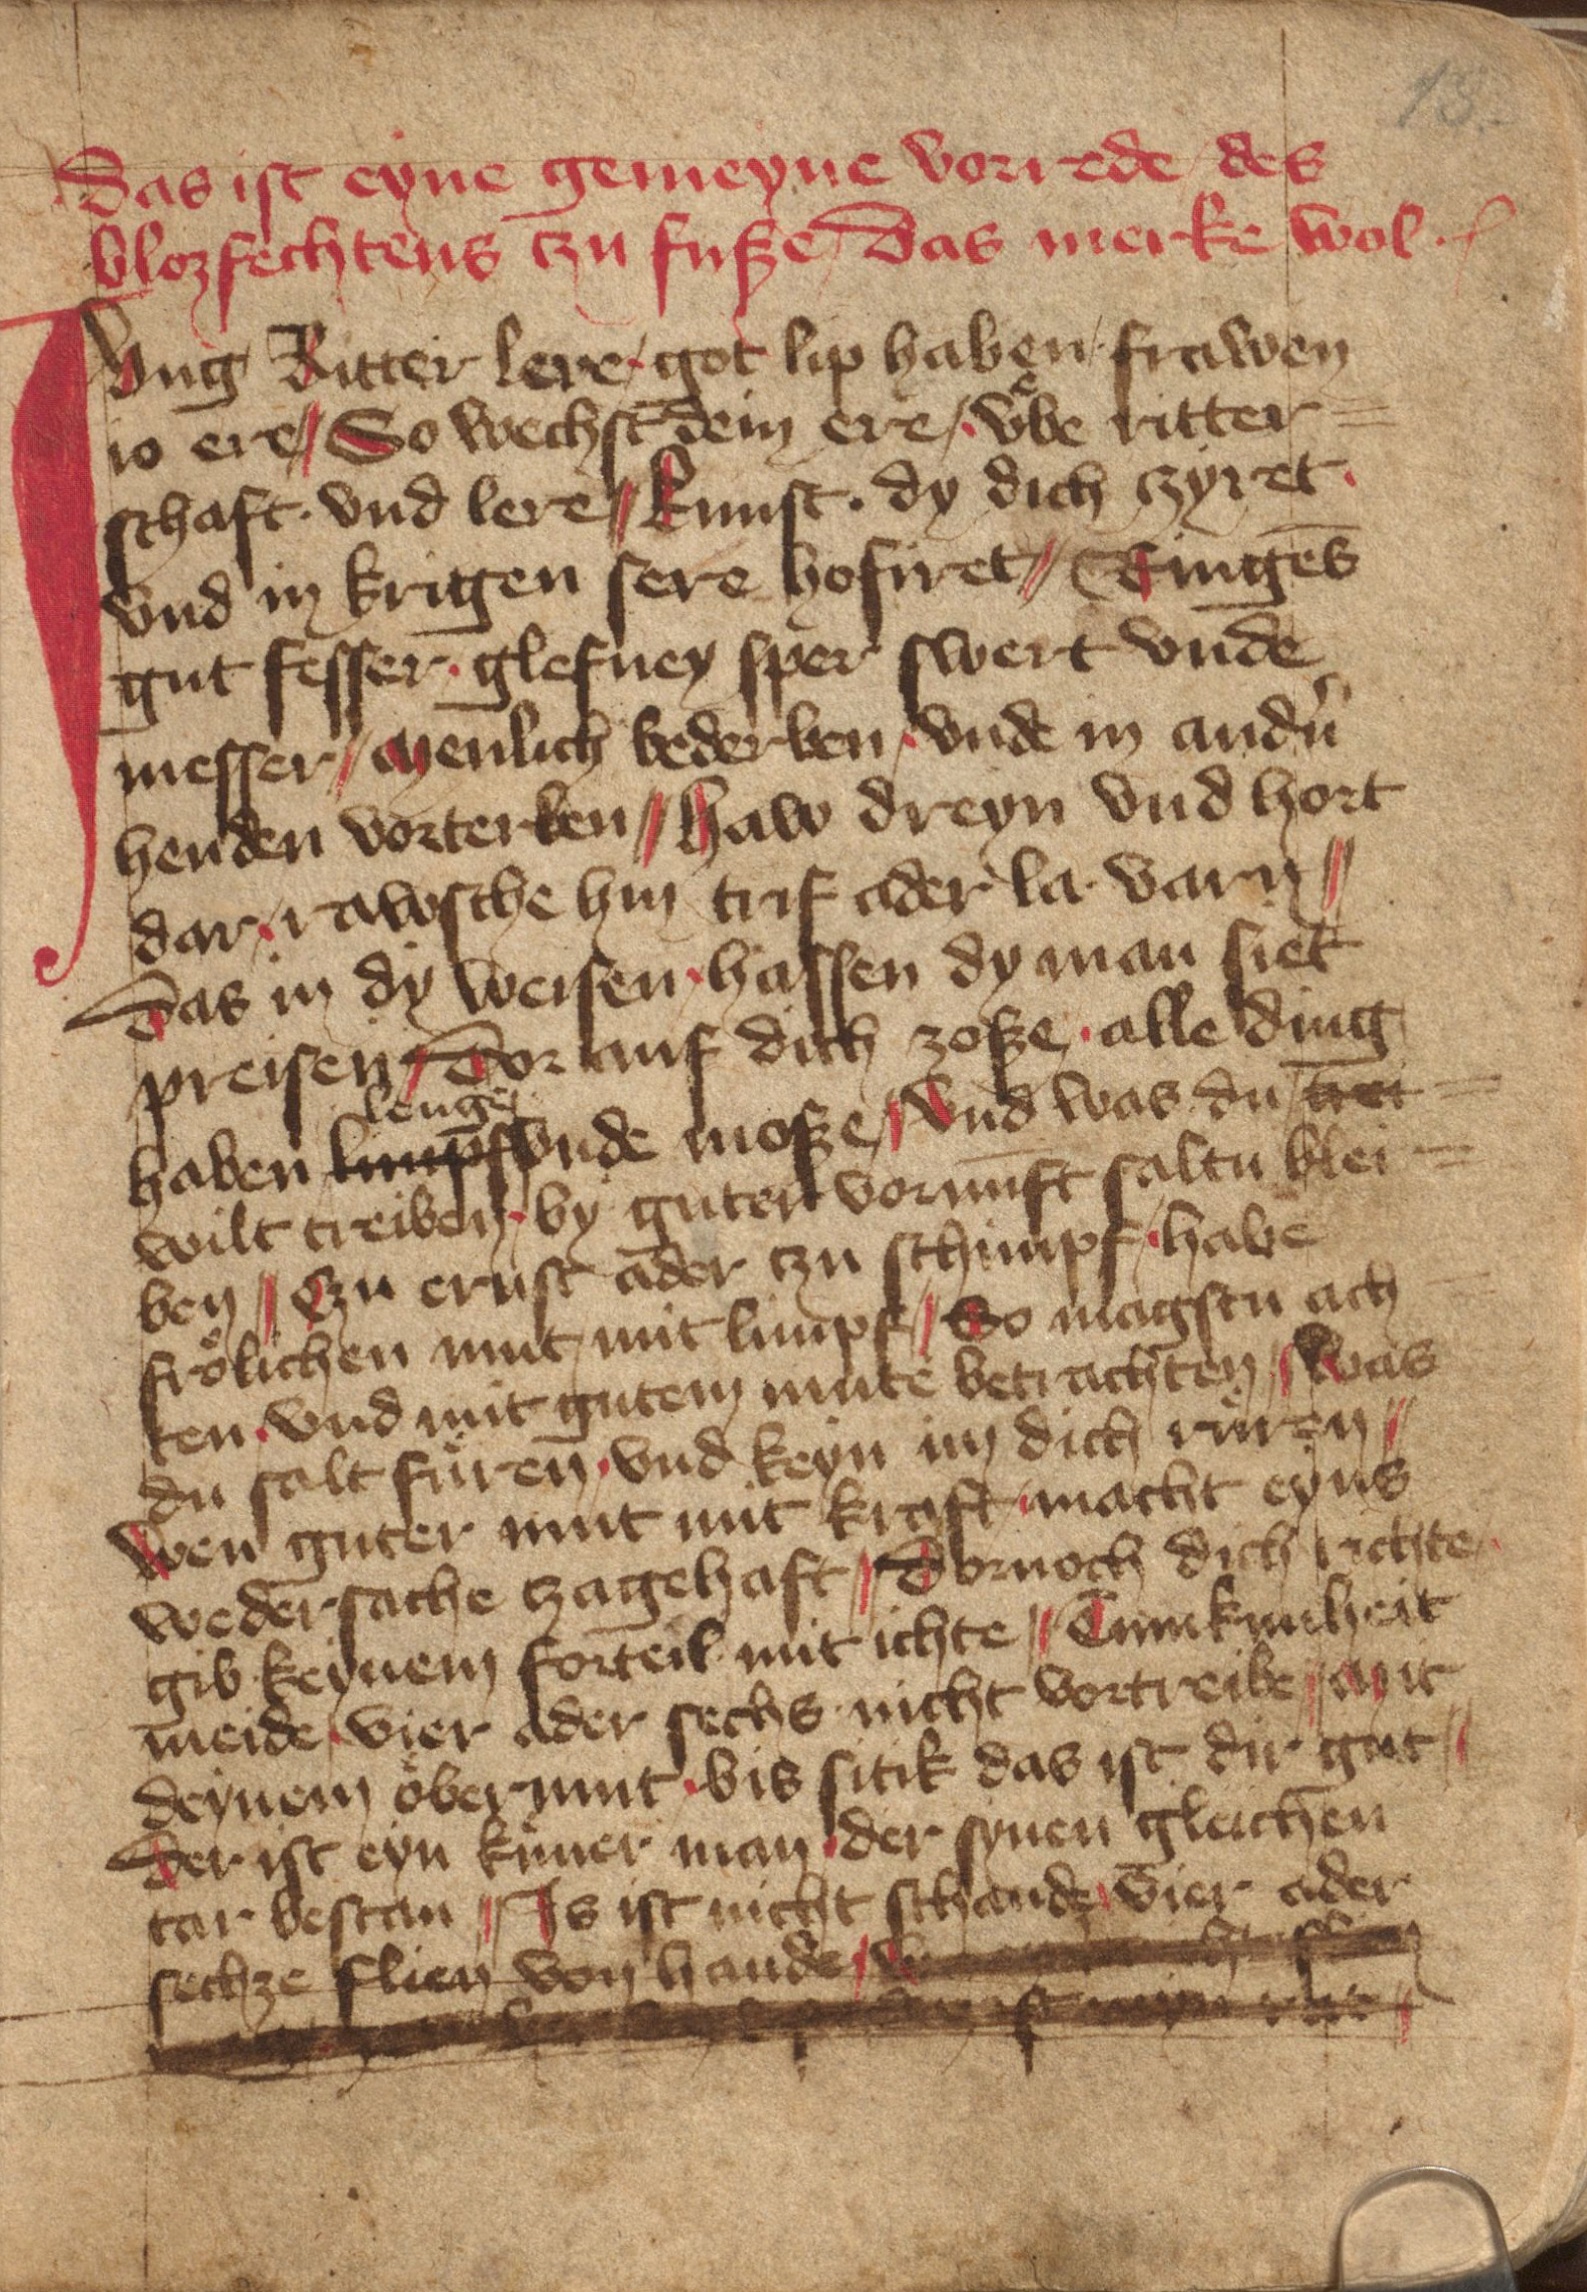 18
Das ist eyne gemeyne vorrede des
blozfechtens czu fuße Das merke wol
Jung Ritter lere / got lip haben / frawen
io ere // So wechst dein ere / vͤbe ritter=
schaft · vnd lere // kunst · dy dich czyret
vnd in krigen sere hofiret // Ringe̅s
gut fesser · glefney sper swert vnde
messer / Menlich bederben · vnde in andñ
henden vorterben // Haw dreyn vnd hort
dar · rawsche hin trif ader la varn //
Das in dy weisen · hassen dy man siet
preisen / Dor auf dich zoße · alle ding
lenge
haben limpf vnde moße / Vnd was du trei=
wilt treiben · by guter vornu̅ft saltu blei=
ben // Czu ernst ader czu schimpf · habe
frölichen mut / mit limpf // So magstu ach
ten · vnd mit gutem mute betrachten / Was
du salt fuͤren · vnd keyn im dich ruͤren //
Wen guter mut mit kraft · macht eyns
wedersache czagehaft // Dornoch dich richte ·
gib keynem forteil mit ichte // Tumkunheit
meide · vier ader sechs nicht vortreibe // Mit
deynem öbermut · bis sitik das ist dir gut //
Der ist eyn kuͤner man · der synen gleichen
tar bestan // Is ist nicht schande · vier ader
sechze flien von hande /